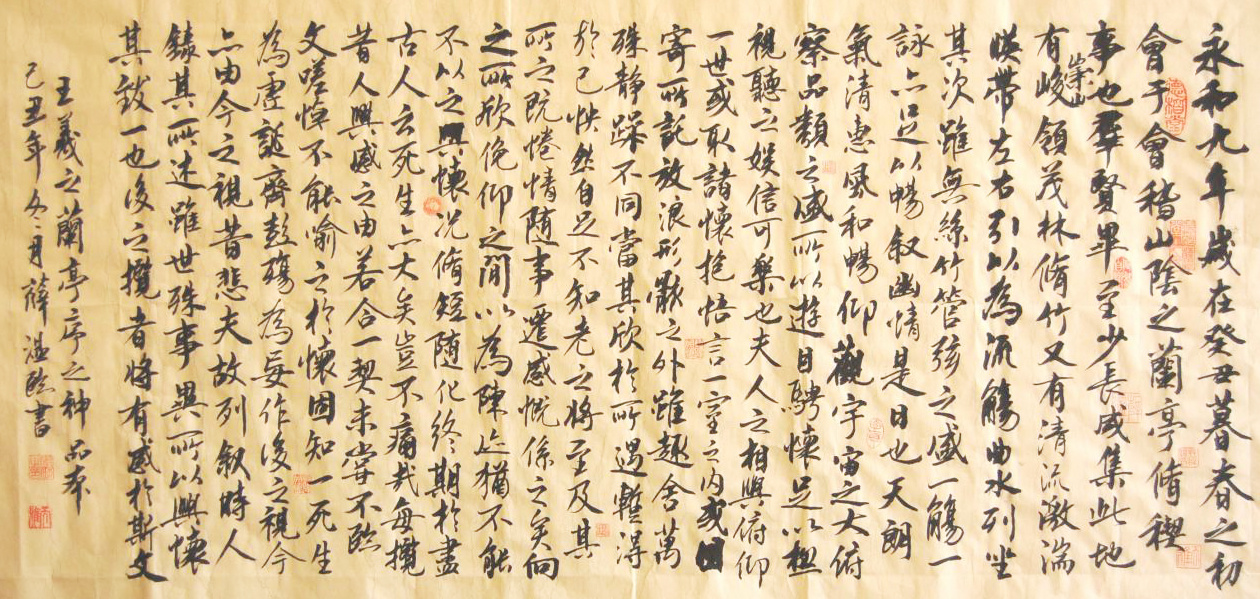 永和九年歲在癸丑暮春之初
會于會稽山陰之蘭亭脩稧
事也羣賢畢至少長咸集此地
有崇山峻領茂林脩竹又有清流激湍
暎帶左右引以為流觴曲水列坐
其次雖無絲竹管弦之盛一觴一
詠亦足以暢叙幽情是日也天朗
氣清惠風和暢仰觀宇宙之大俯
察品類之盛所以遊目騁懷足以極
視聽之娛信可樂也夫人之相與俯仰
一世或取諸懷抱悟言一室之內或因
寄所託放浪形骸之外雖趣舍萬
殊靜躁不同當其欣於所遇蹔得
於己怏然自足不知老之將至及其
所之既惓情隨事遷感慨係之矣向
之所欣俛仰之閒以為陳迹猶不能
不以之興懷况脩短隨化終期於盡
古人云死生亦大矣豈不痛哉每攬
昔人興感之由若合一契未嘗不臨
文嗟悼不能喻之於懷固知一死生
為虛誕齊彭殤為妄作後之視今
亦由今之視昔悲夫故列叙時人
錄其所述雖世殊事異所以興懷
其致一也後之攬者將有感於斯文
王羲之蘭亭序之神品本
己丑年冬月薛溫臨書